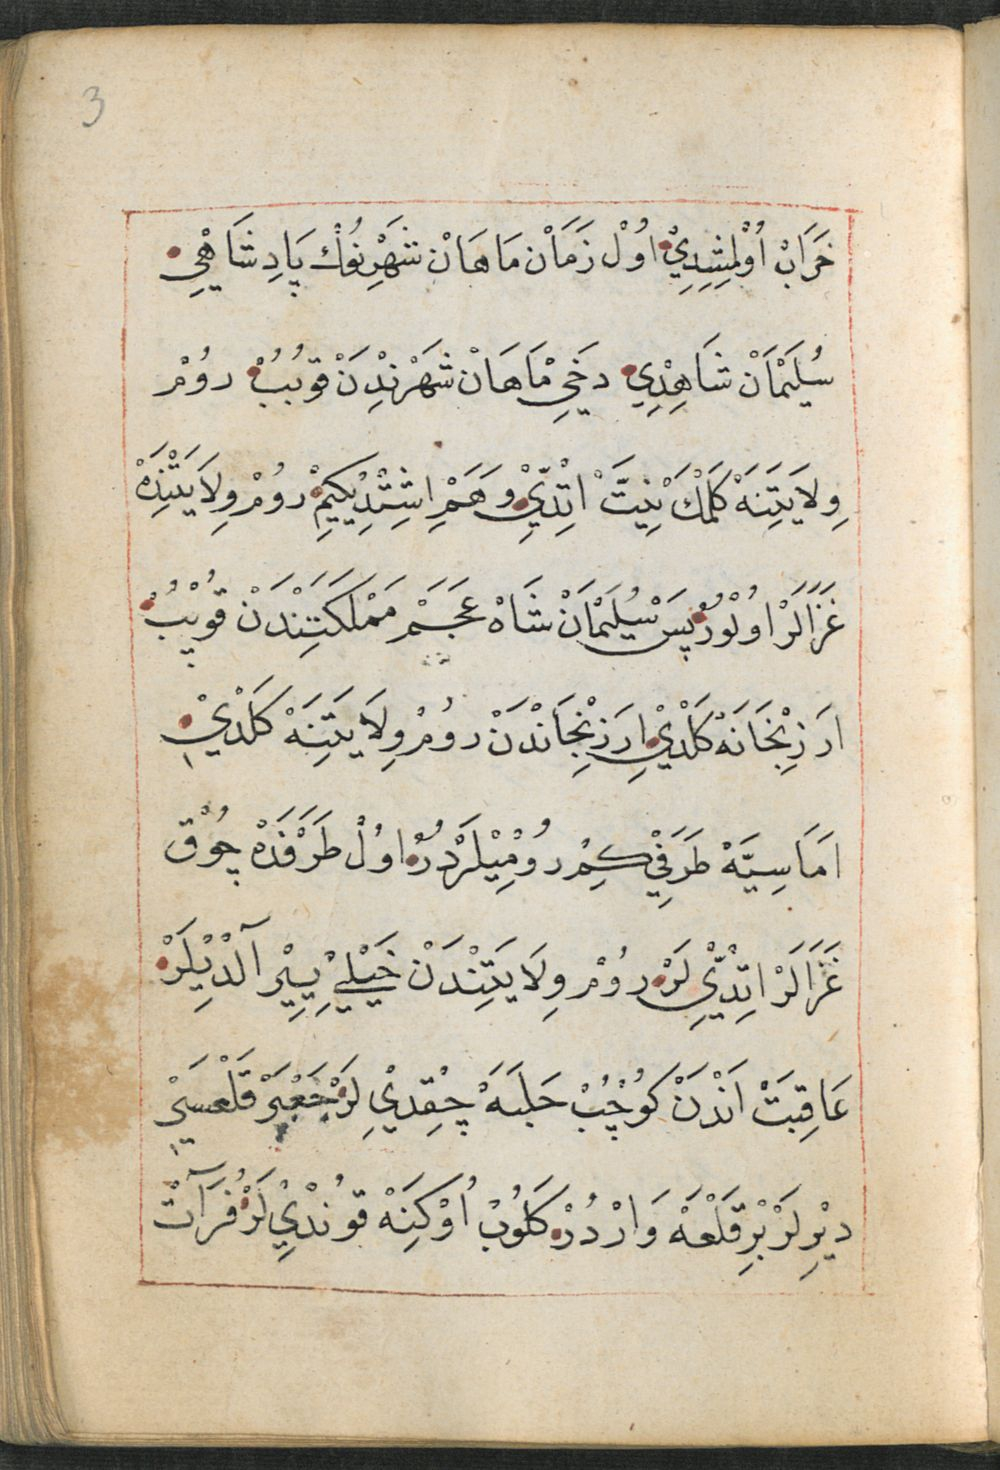 3
خَرَابْ اُوْلْمِشِدِيْ اوُلْ زَمَانْ مَاهَانْ شَهْرِنُوكْ پَادِشَاهِي
سُلَيْمَانْ شَاهِدِي دَخِي مَاهَانْ شَهْرِنْدَنْ قوُپُبْ رُومْ
وِلَايَتِنَهْ كَلْمَكْ نِيَّتْ اِتْدِي وَهَمْ اِشِتْدِيكِيمْ رُومْ وِلَايَتِنْدَهْ
غَزَالَرْ اوُلُورْ پَسْ سُلَيْمَانْ شَاهْ عَجَمْ مَمْلَكَتِنْدَنْ قوُپُبْ
اَرَزِنْجَانَهْ كَلْدِيْ اَرَزِنْجَانْدَنْ رُومْ وِلَايَتِنَهْ كَلْدِيْ
اَمَاسِيَّهْ طَرَفِي كِمْ رُومِيْلَرْدُرْ اوُلْ طَرَفْدَهْ چُوْقْ
غَزَالَرْ اِتْدِيْلَرْ رُومْ وِلَايَتِنْدَنْ خَيْلِي يِيْرْ آلْدِيْلَرْ
عَاقِبَتْ اَنْدَنْ كُوچُبْ حَلَبَهْ چِقْدِيْ لَرْ جَعْبَرْ قَلْعَسِي
دِيْرِلَرْ بْرِ قَلْعَهْ وَارْدُرْ كَلُوبْ اُوْكِنَهْ قوُنْدِيْ لَرْ فُرَآتْ